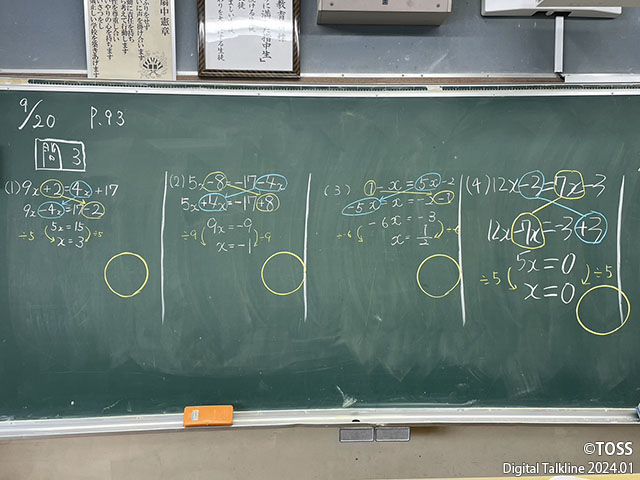 9/20 P.93
問 3
(1) 9x+2=4x+17
9x-4x=17-2
5x=15
÷5 ÷5
x=3
(2) 5x-8=-17-4x
5x+4x=-17+8
9x=-9
÷9 ÷9
x=-1
(3) 1-x=5x-2
-5x-x=-2-1
-6x=-3
÷-6 ÷-6
x=1/2
(4) 12x-3=7x-3
12x-7x=-3+3
5x=0
÷5 ÷5
x=0
©TOSS
Digital Talkline 2024.01